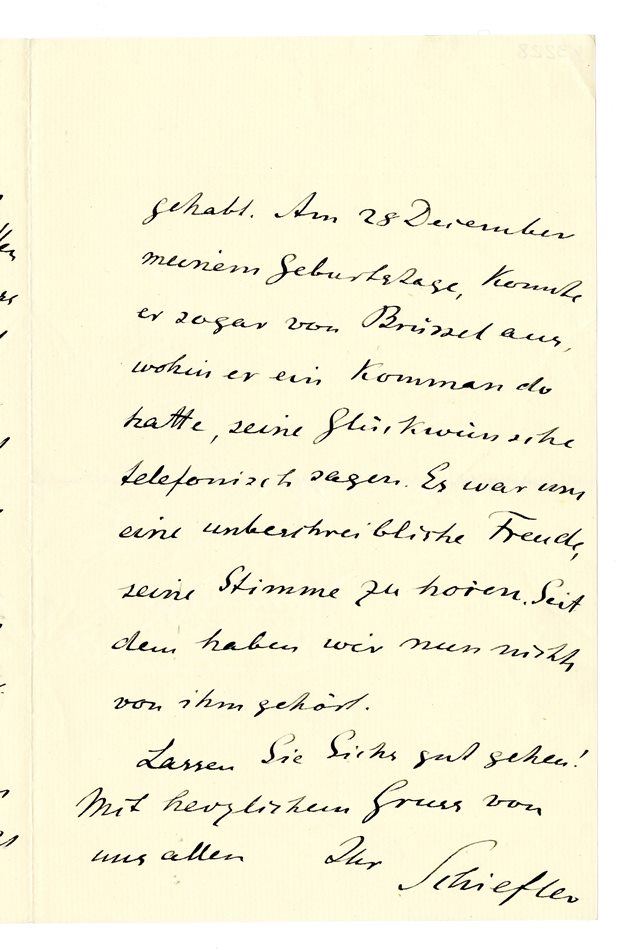 gehabt. Am 28 Dezember
meinem Geburtstage, konnte
er sogar von Brüssel aus,
wohin er ein Kommando
hatte, seine Glückwünsche
telefonisch sagen. Es war uns
eine unbeschreibliche Freude,
seine Stimme zu hören. Seit
dem haben wir nun nichts
von ihm gehört.
Lassen Sie Sichs gut gehen!
Mit herzlichem Gruss von
uns allen Ihr
Schiefler